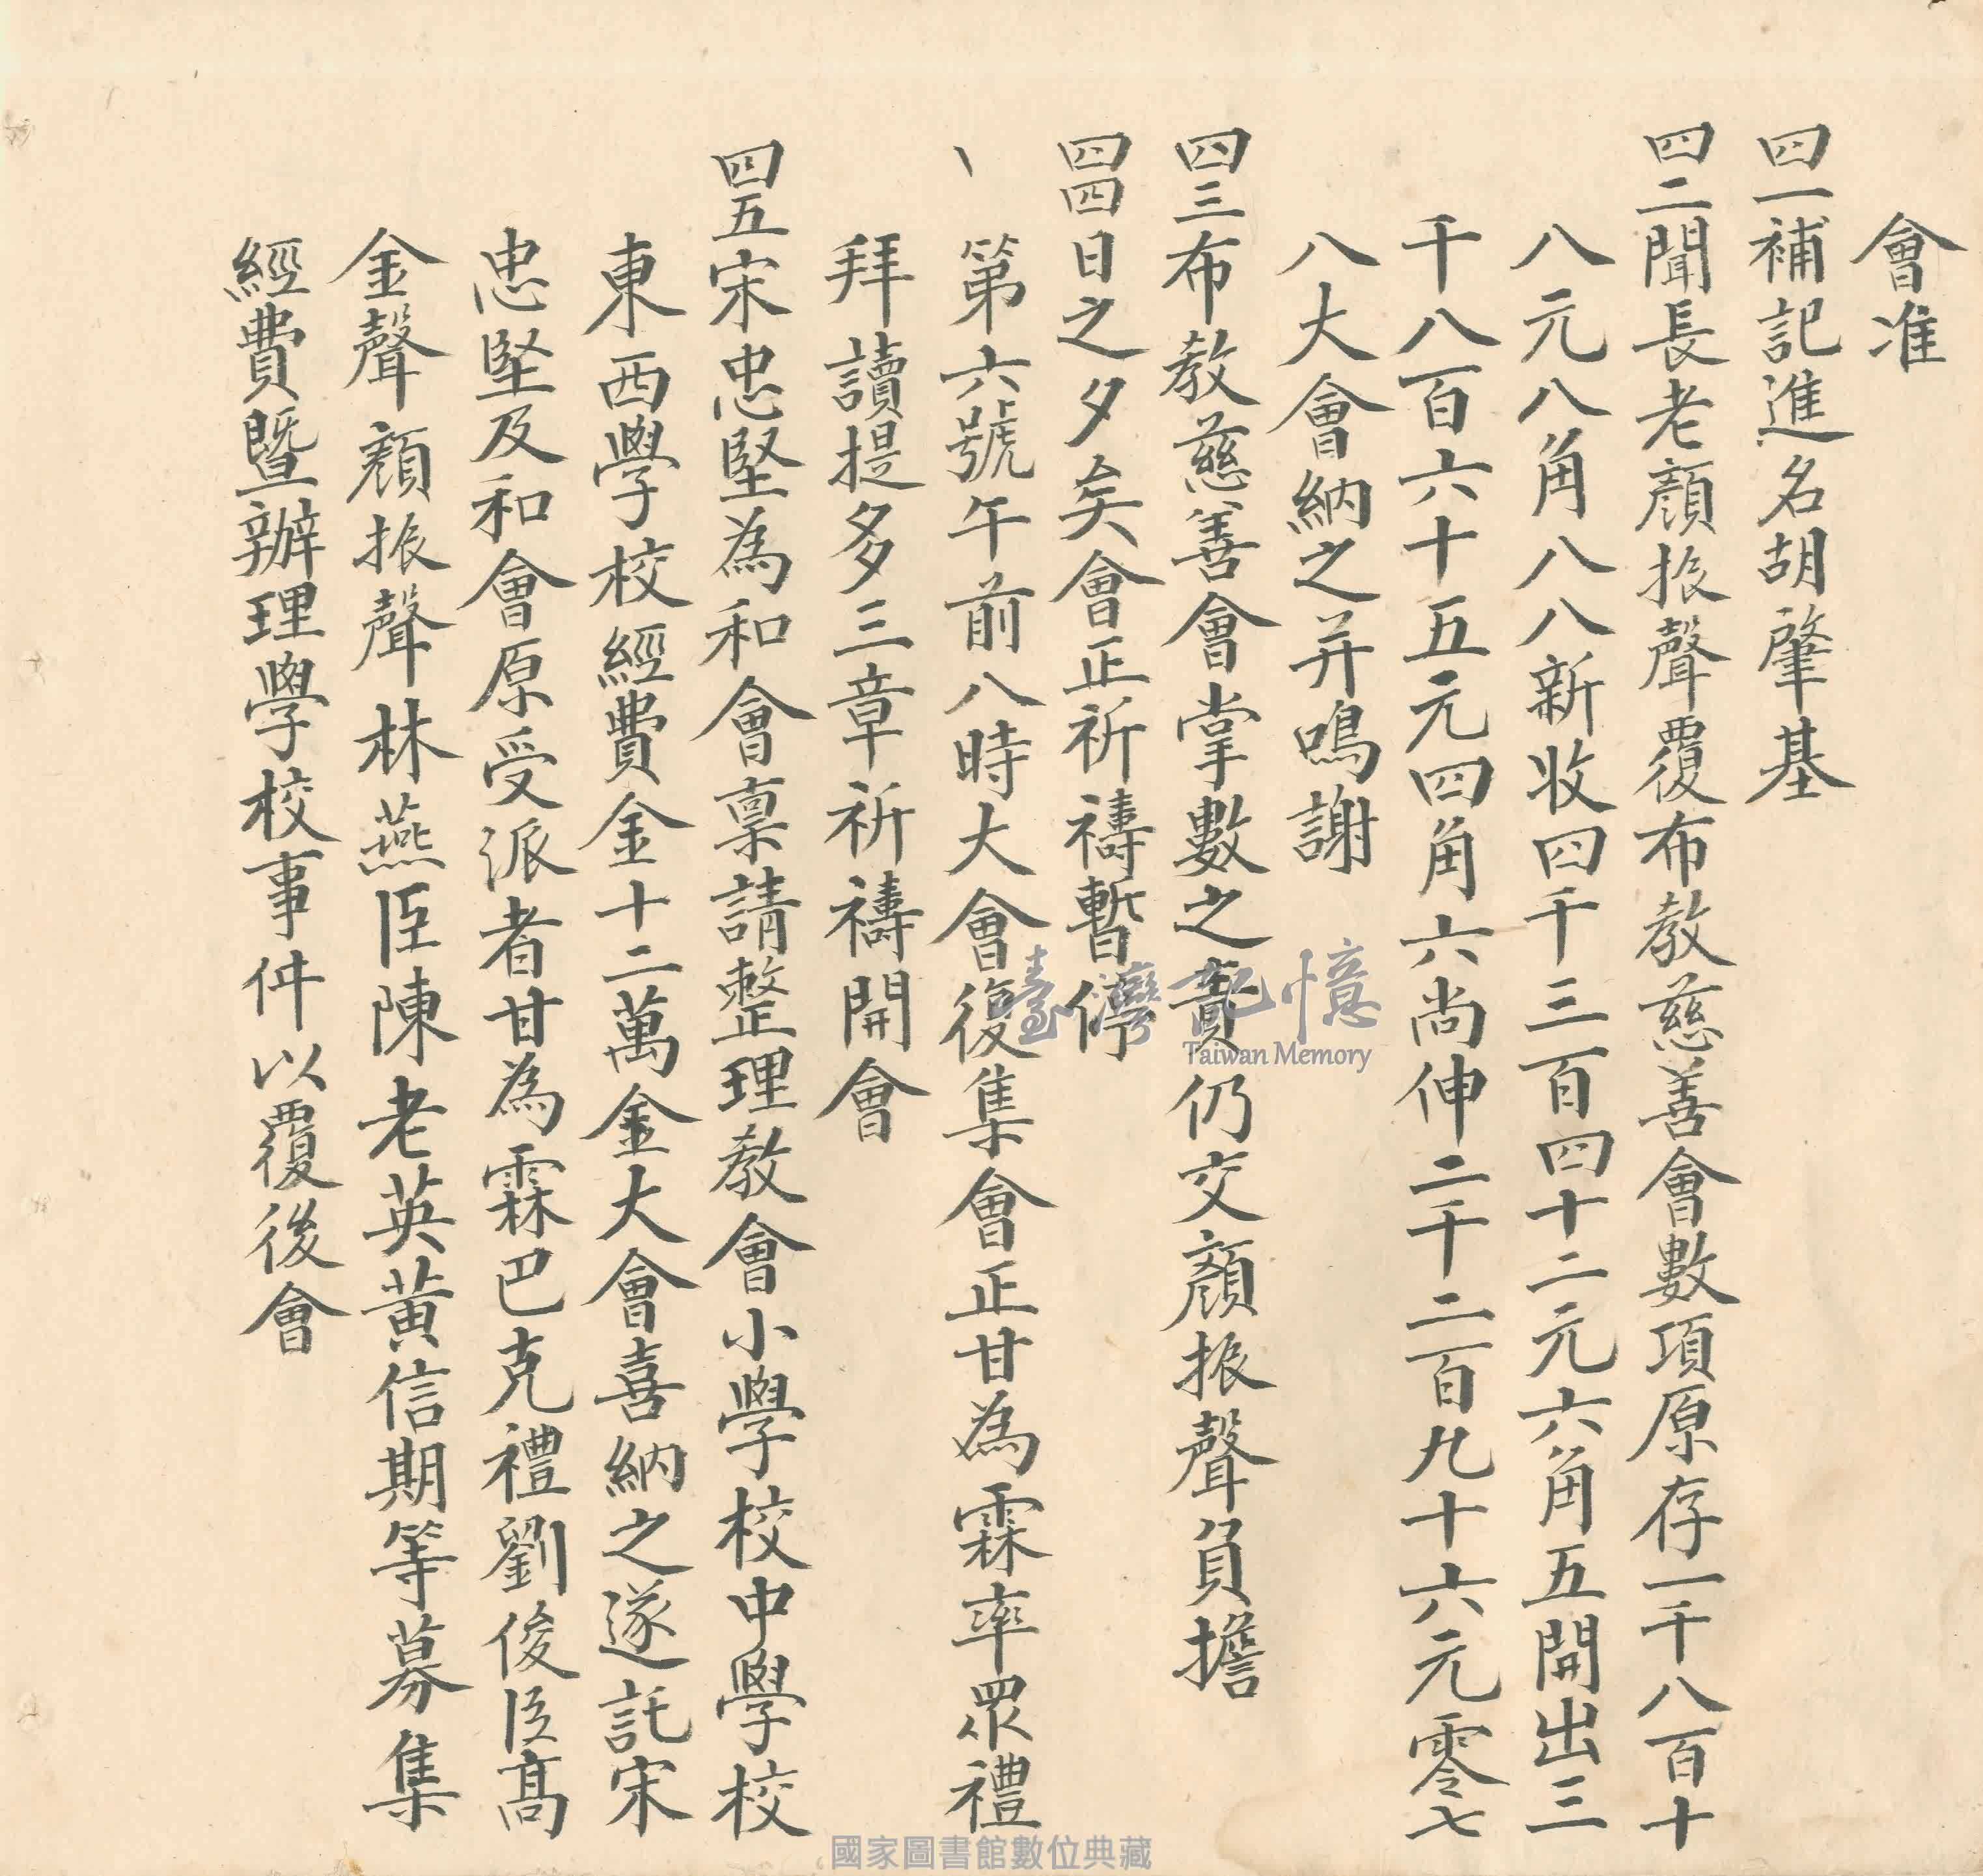 會准
四一補記進名胡肇基
四二聞長老顏振聲覆布教慈善會數項原存一千八百十
八元八角八八新收四千三百四十二元六角五開出三
千八百六十五元四角六尚伸二千二百九十六元零七
八大會納之并鳴謝
四三布教慈善會掌數之責仍交顏振聲負擔
四四日之夕矣會正祈禱暫停
、第六號午前八時大會復集會正甘為霖率眾禮
拜讀提多三章祈禱開會
四五宋忠堅為和會禀請整理教會小學校中學校
東西學校經費金十二萬金大會喜納之遂託宋
忠堅及和會原受派者甘為霖巴克禮劉俊臣高
金聲顏振聲林燕臣陳老英黃信期等募集
經費暨辦理學校事件以覆後會
臺灣記憶
Taiwan Memory
國家圖書館數位典藏